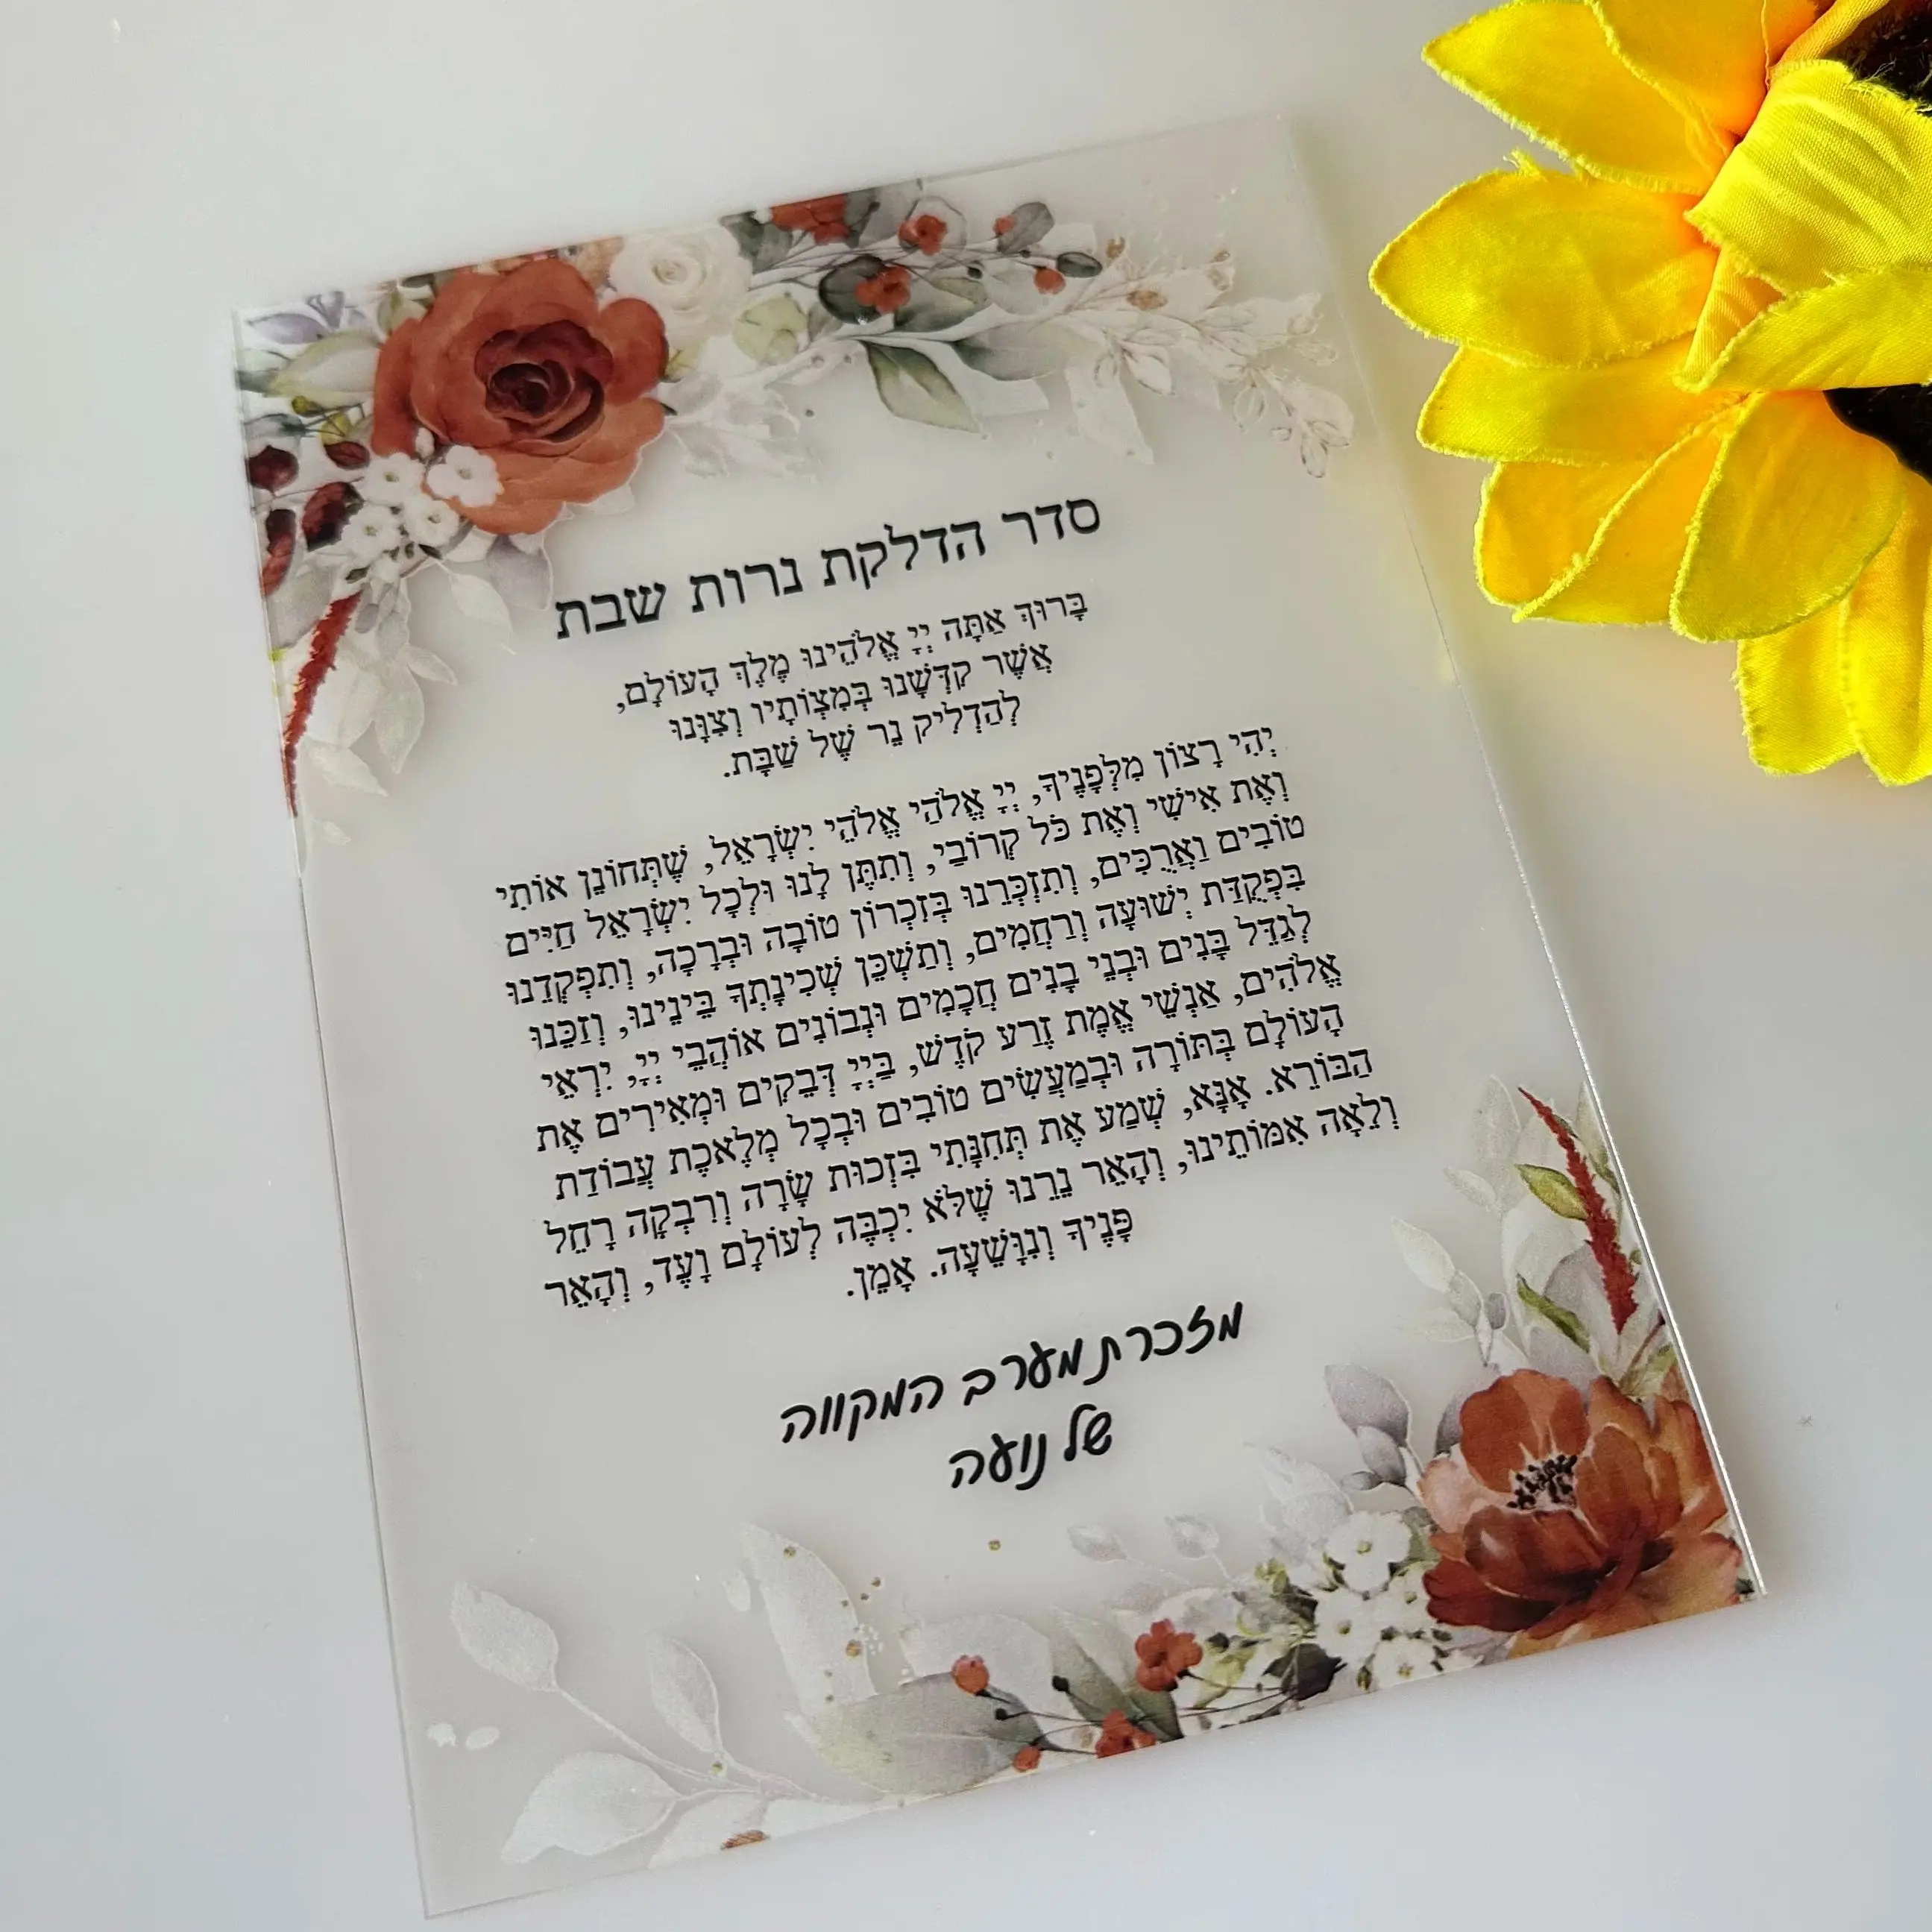 סדר הדלקת נרות שבת
בָּרוּךְ אַתָּה יְיָ אֱלֹהֵינוּ מֶלֶךְ הָעוֹלָם,
אֲשֶׁר קִדְּשָׁנוּ בְּמִצְוֹתָיו וְצִוָּנוּ
לְהַדְלִיק נֵר שֶׁל שַׁבָּת.
יְהִי רָצוֹן מִלְּפָנֶיךָ, יְיָ אֱלֹהַי אֱלֹהֵי יִשְׂרָאֵל, שֶׁתְּחוֹנֵן אוֹתִי
וְאֶת אִישִׁי וְאֶת כֹּל קְרוֹבַי, וְתִתֶּן לָנוּ וּלְכָל יִשְׂרָאֵל חַיִּים
טוֹבִים וַאֲרֻכִּים, וְתִזְכְּרֵנוּ בְּזִכְרוֹן טוֹבָה וּבְרָכָה, וְתִפְקְדֵנוּ
בִּפְקֻדַּת יְשׁוּעָה וְרַחֲמִים, וְתַשְׁכֵּן שְׁכִינָתְךָ בֵּינֵינוּ, וְזַכֵּנוּ
לְגַדֵּל בָּנִים וּבְנֵי בָנִים חֲכָמִים וּנְבוֹנִים אוֹהֲבֵי יְיָ, יִרְאֵי
אֱלֹהִים, אַנְשֵׁי אֱמֶת זֶרַע קֹדֶשׁ, בַּיְיָ דְּבֵקִים וּמְאִירִים אֶת
הָעוֹלָם בְּתוֹרָה וּבְמַעֲשִׂים טוֹבִים וּבְכָל מְלֶאכֶת עֲבוֹדַת
הַבּוֹרֵא. אָנָּא, שְׁמַע אֶת תְּחִנָּתִי בִּזְכוּת שָׂרָה וְרִבְקָה רָחֵל
וְלֵאָה אִמּוֹתֵינוּ, וְהָאֵר נֵרֵנוּ שֶׁלֹּא יִכְבֶּה לְעוֹלָם וָעֶד, וְהָאֵר
פָּנֶיךָ וְנִוָּשֵׁעָה. אָמֵן.
מזכרת מערב המקווה
של נועה